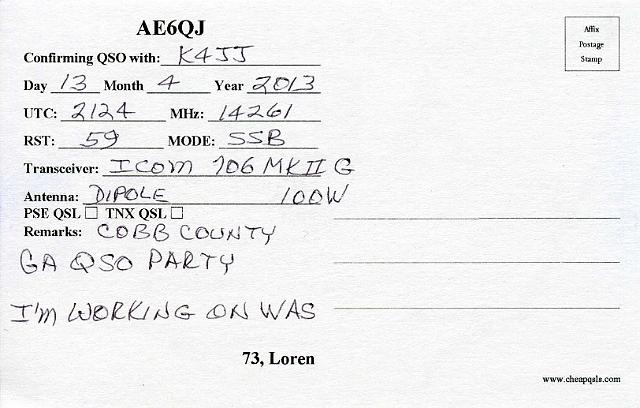 AE6QJ
Affix
Postage
Stamp
Confirming QSO with: K4JJ
Day 13 Month 4 Year 2013
UTC: 2124 MHz: 14261
RST: 59 MODE: SSB
Transceiver: ICOM 706 MKII G
Antenna: DIPOLE 100W
PSE QSL ☐ TNX QSL ☐
Remarks: COBB COUNTY
GA QSO PARTY
I'M WORKING ON WAS
73, Loren
www.cheapqsls.com